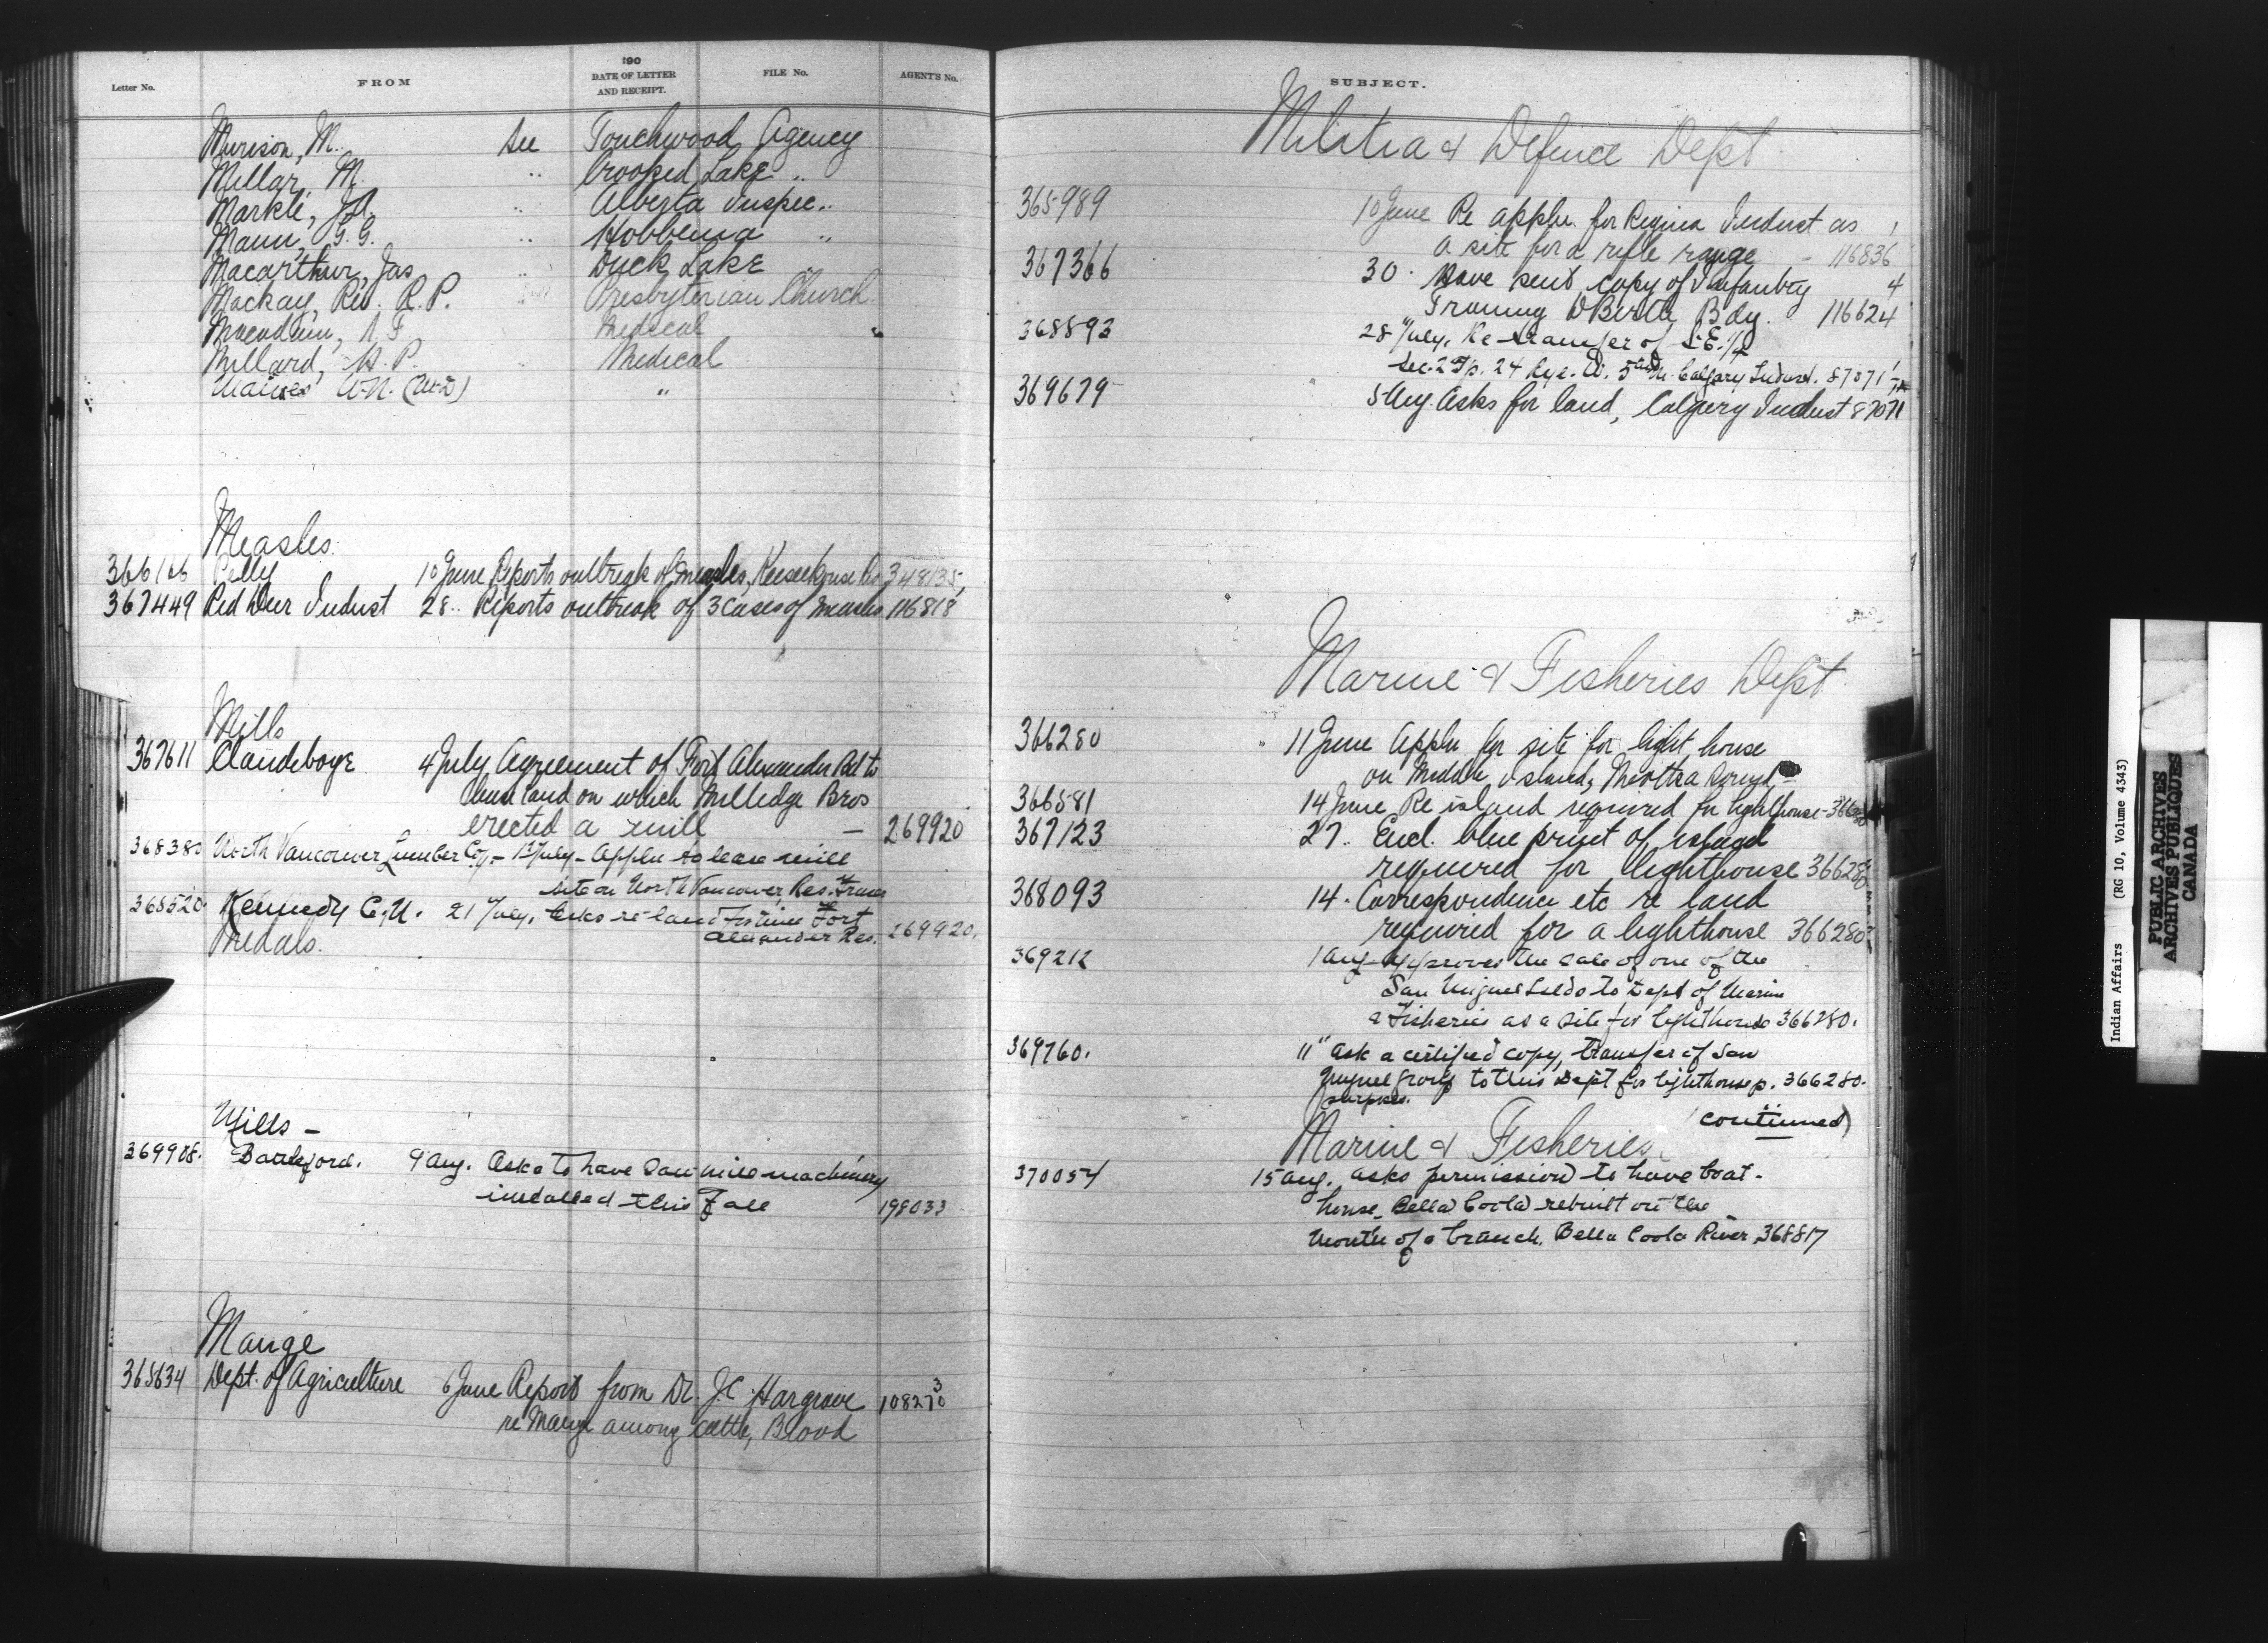 Letter No. FROM 190 DATE OF LETTER AND RECEIPT. FILE No. AGENT'S No.
Murison, M. See Touchwood Agency
Millar, M. " Crooked Lake "
Markle, J.A. " Alberta Inspec. "
Mann, G.G. " Hobbema "
Macarthur, Jas " Duck Lake "
Mackay, Rev. R.P. " Presbyterian Church
Medical
Millard, H.P. Medical
W.N. "
Measles
366166 Pelly 10 June Reports outbreak of measles, Keeseekouse 348135
367449 Red Deer Indust 28 " Reports outbreak of 3 cases of measles 116818
Mills
367611 Clandeboye 4 July Agreement of Fort Alexander Bd to
lease land on which Milledge Bros
erected a mill — 269920
36838 North Vancouver Lumber Co., - July - Appln to lease mill
site on North Vancouver Res.
368520 Kennedy 21 July, Asks re land Fort
Alexander Res. 269920.
Medals.
Mills —
369908. Battleford. 9 Aug. Asks to have saw mill machinery
installed this Fall 198033
Mange
365634 Dept. of Agriculture 6 June Report from Dr. J.C. Hargrave 10827
re Mange among cattle, Blood
SUBJECT.
Militia & Defence Dept
365989 10 June Re appln. for Regina Indust as
a site for a rifle range - 116836
367366 30 " Have sent copy of Infantry
Training Birtle Bdg. 116624
368893 28 July. Re transfer of S.E. 1/4
Sec. 2 Tp. 24 Rge. Calgary Indust. 87071
369679 5 Aug. Asks for land, Calgary Indust 87071
Marine & Fisheries Dept
366280 11 June Appln for site for light house
on Middle Island,
366581 14 June Re island required for lighthouse - 366280
367123 27. Encl. blue print of island
required for lighthouse 366280
368093 14. Correspondence etc re land
required for a lighthouse 366280
369212 1 Aug. Approves the sale of one of the
San Miguel Islds to Dept of Marine
& Fisheries as a site for lighthouse 366280.
369760. 11" Ask a certified copy, transfer of San
Miguel group to this Dept for lighthouse p. 366280.
purposes.
(continued)
Marine & Fisheries.
370054 15 Aug., asks permission to have boat-
house, Bella Coola rebuilt on the
mouth of a branch, Bella Coola River, 368817
Indian Affairs (RG 10, Volume 4343)
PUBLIC ARCHIVES
ARCHIVES PUBLIQUES
CANADA